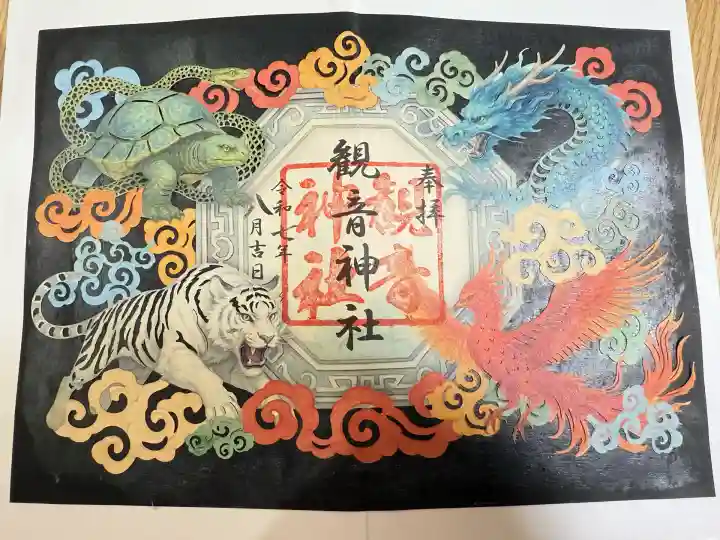 奉拝
観音神社
観音
神社
令和七年
八月吉日